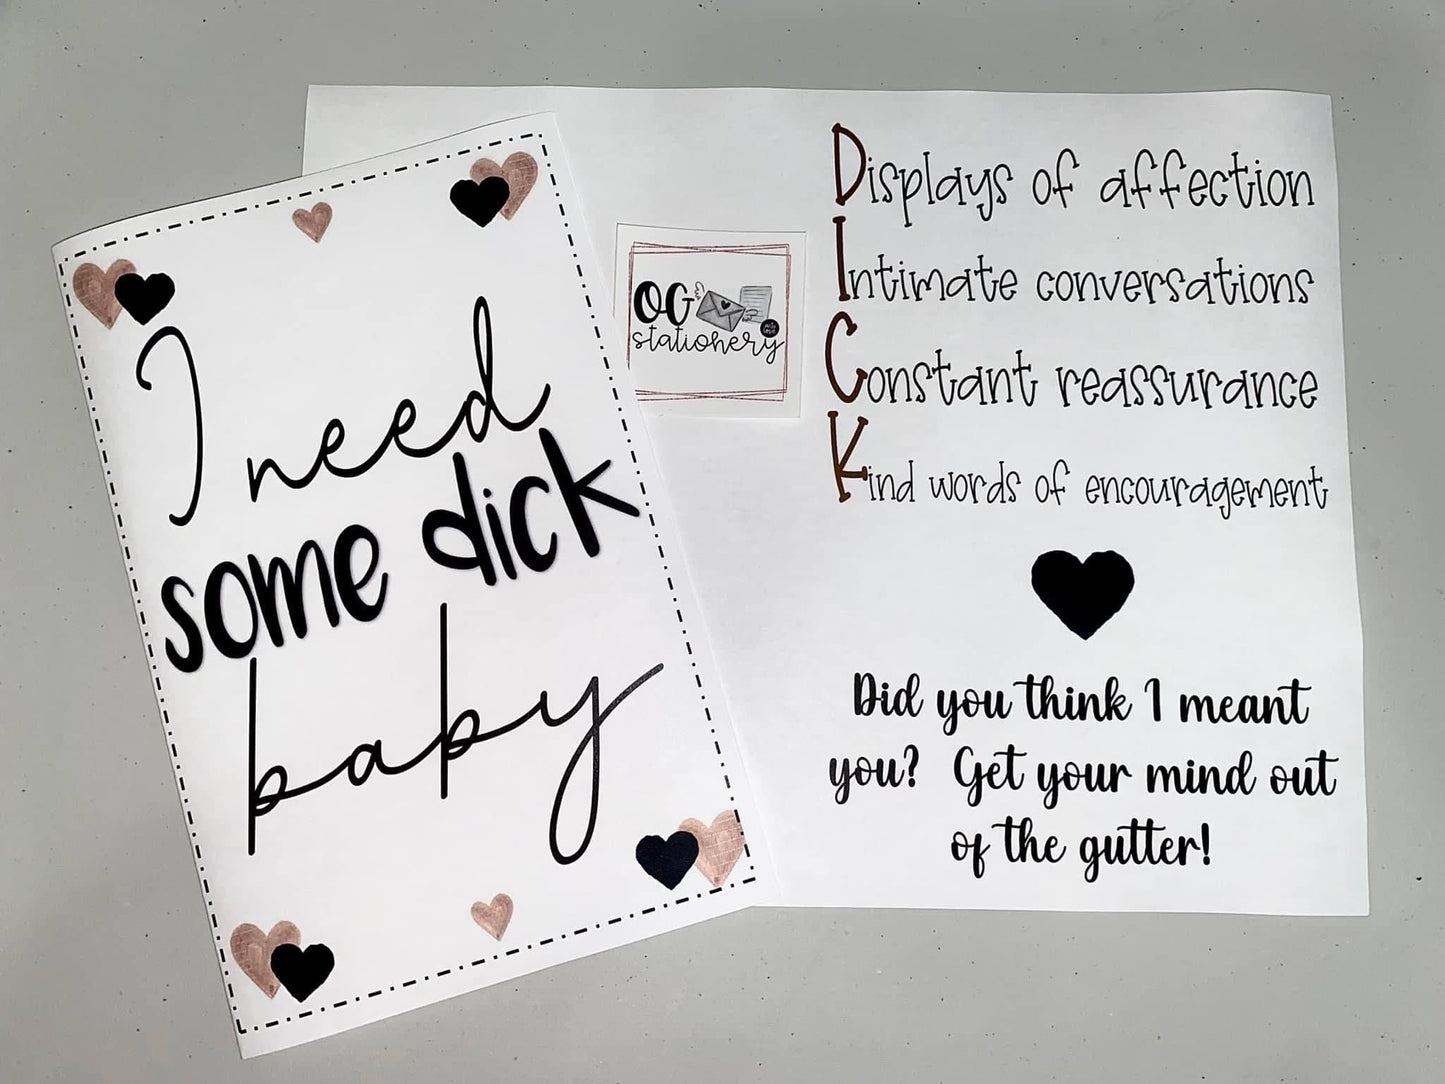 I need
some dick
baby
OG
stationery
Displays of affection
Intimate conversations
Constant reassurance
Kind words of encouragement
Did you think I meant
you? Get your mind out
of the gutter!